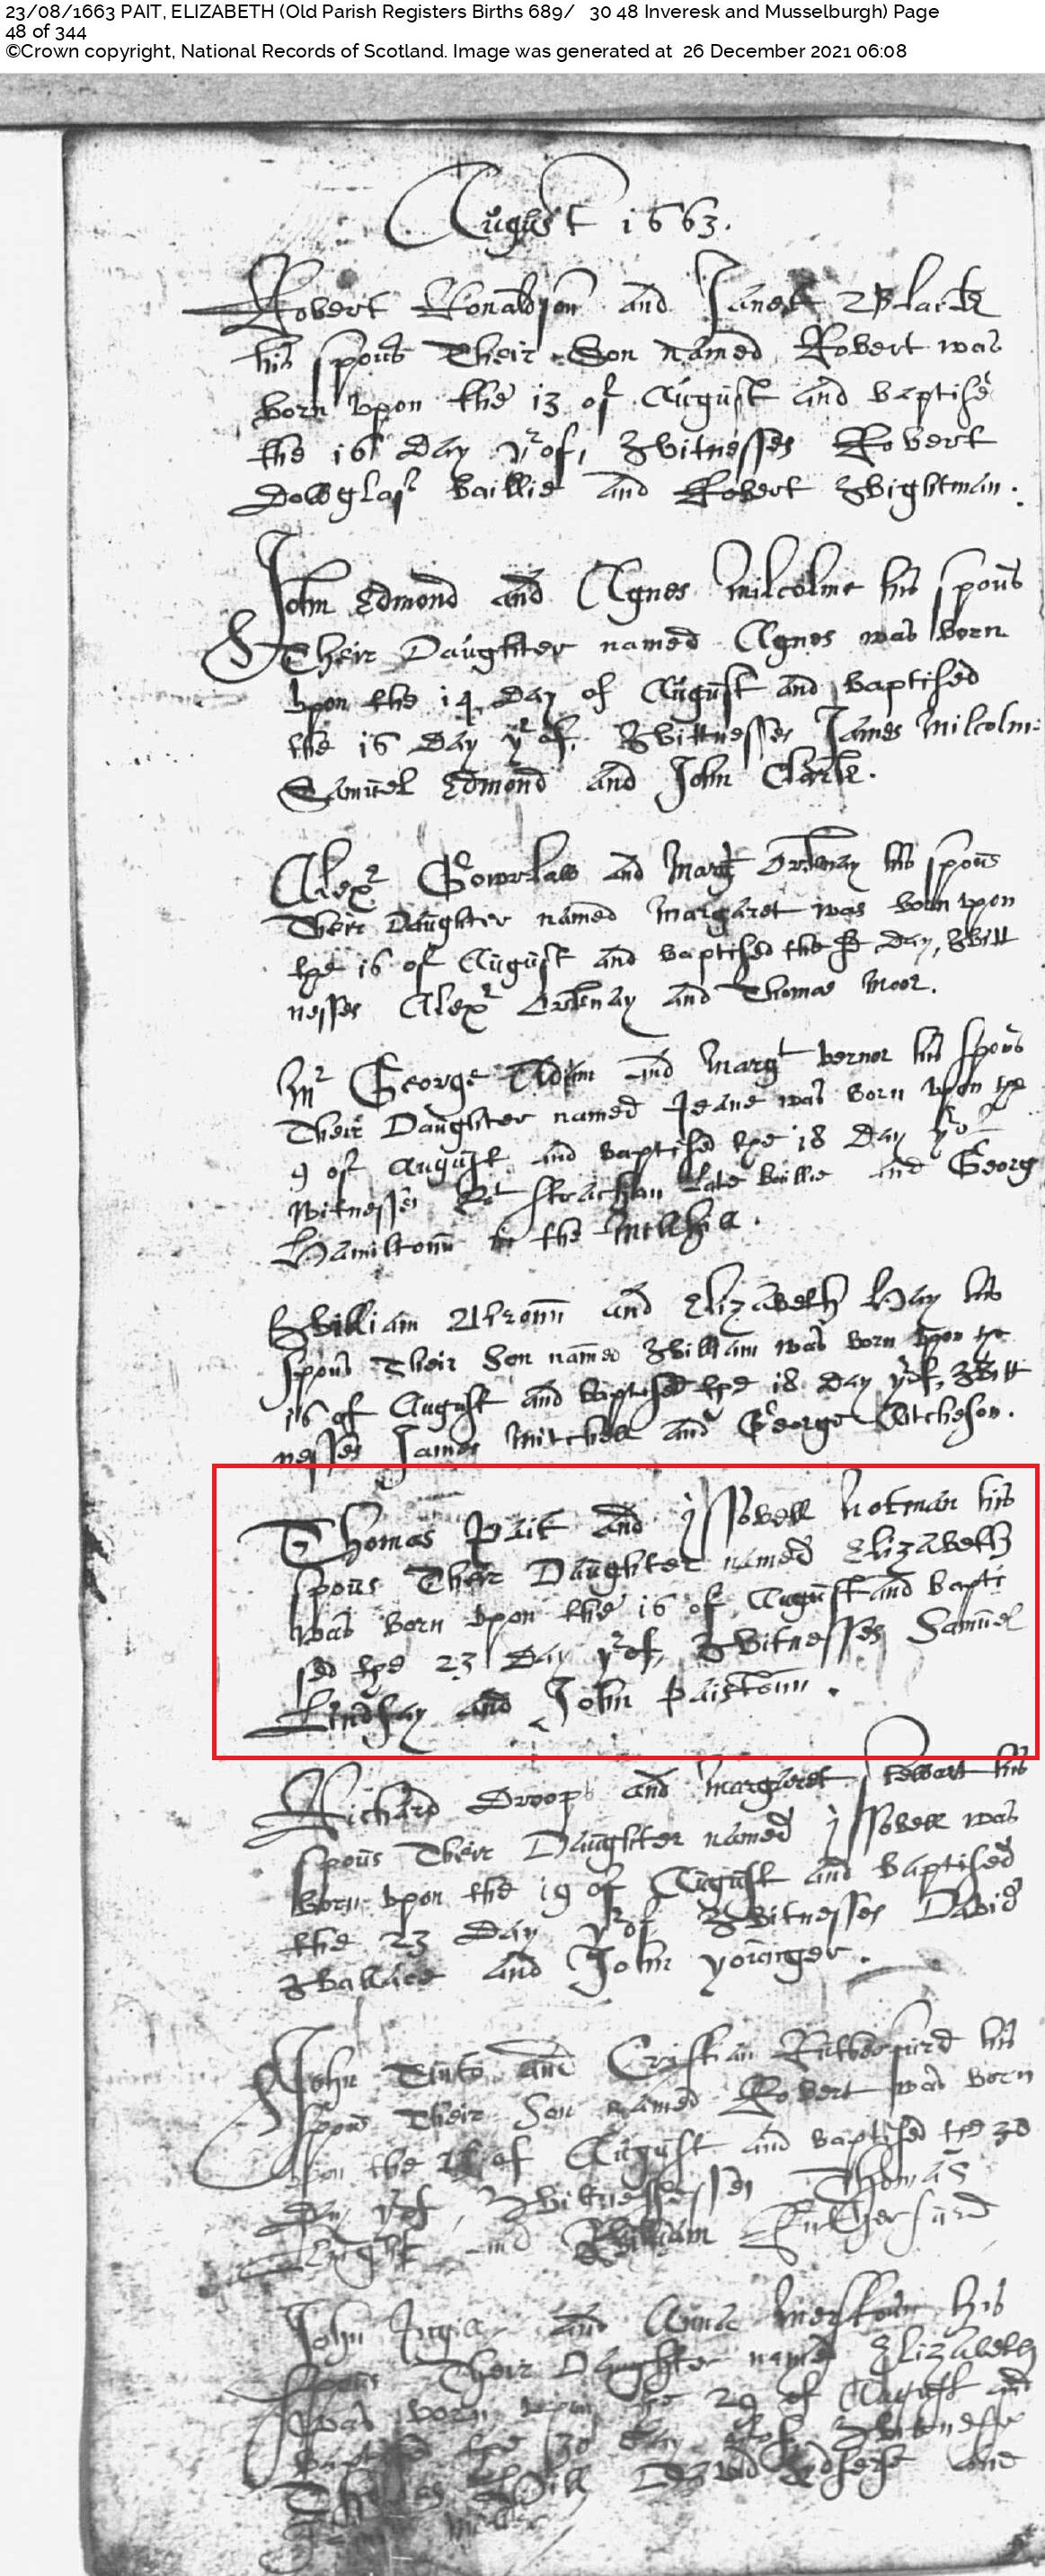 23/08/1663 PAIT, ELIZABETH (Old Parish Registers Births 689/ 30 48 Inveresk and Musselburgh) Page
48 of 344
©Crown copyright, National Records of Scotland. Image was generated at 26 December 2021 06:08
August 1663.
Robert Ronaldson and Janet Black
his spous Their Son named Robert was
born vpon the 13 of August and baptised
the 16 Day yrof, Witnesses Robert
Dowglas Baillie and Robert Wightman.
John Edmond and Agnes Milcolme his spous
Their Daughter named Agnes was born
vpon the 14 Day of August and baptised
the 16 Day yrof, Wittnesses James Milcolm:
Samuel Edmond and John Clark.
Alexr Gowrlaw and Margt his spous
Their Daughter named Margaret was born vpon
the 16 of August and baptised the Day, Witt
nesses Alexr and Thomas Moor.
Mr George and Margt vernor his spous
Their Daughter named Jeane was born vpon the
9 of August and baptised the 18 Day yrof
Witnesses Rot Strachan late Baillie and Georg
Hamiltoun in the
William and Elizabeth Hay his
spous Their Son named William was born vpon the
16 of August and baptised the 18 Day yrof, Witt
nesses James Mitchell and George Aitcheson.
Thomas Pait and Jssobell Notman his
spous Their Daughter named Elizabeth
was born vpon the 16 of August and bapti
sed the 23 Day yrof, Witnesses Samuel
Lindsay and John Paistoun.
Richard Droop and Margaret Stewart his
spous Their Daughter named Jssobell was
born vpon the 19 of August and baptised
the 23 Day yrof Witnesses David
Wallace and John younger.
John Tinto and Cristian Rutherfurd his
spous Their Son named Robert was born
vpon the of August and baptised the 30
Day yrof, Witnesses Thomas
and William Rutherfurd
John and his
spous Their Daughter named Elizabeth
was born vpon the 29 of August and
baptised the 30 Day yrof, Witnesses
and